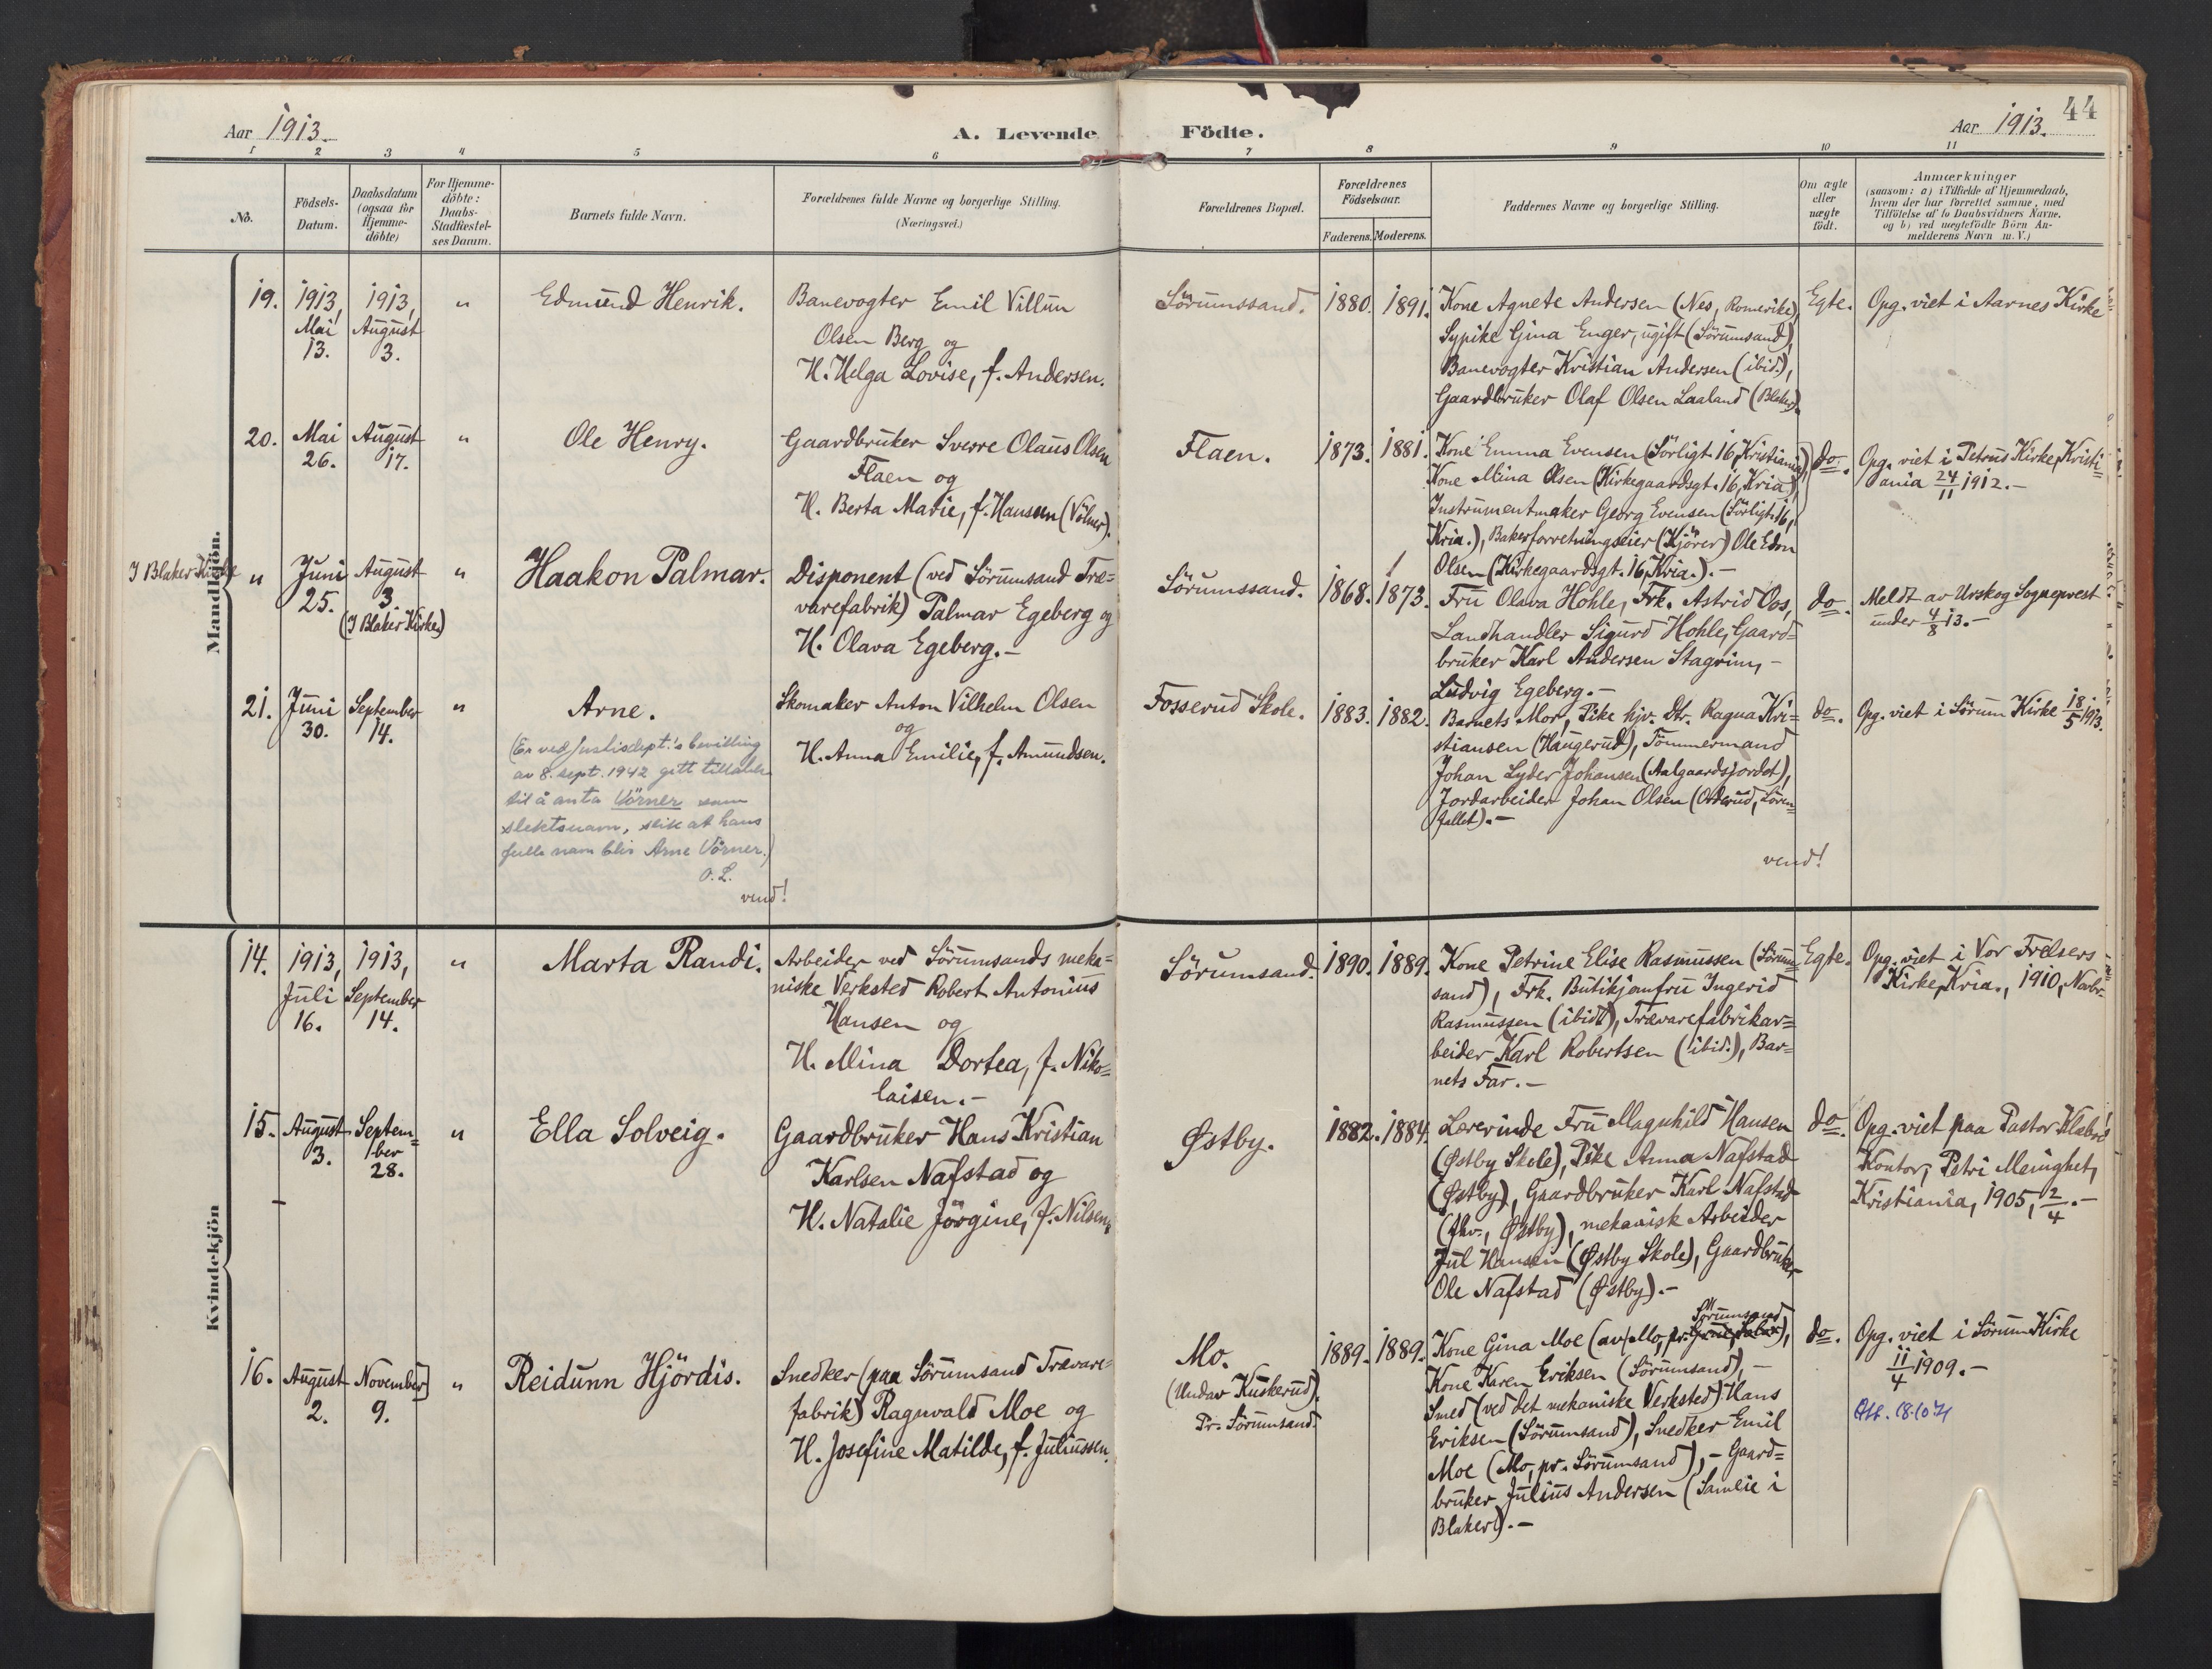 Aar 1913.
A. Levende
Födte.
Aar 1913.
44
1 2 3 4 5 6 7 8 9 10 11
No.
Födsels-
Datum.
Daabsdatum
(ogsaa för
Hjemme-
döbte)
For Hjemme-
döbte:
Daabs-
Stadfæstel-
ses Datum.
Barnets fulde Navn.
Forældrenes fulde Navne og borgerlige Stilling.
(Næringsvei.)
Forældrenes Bopæl.
Forældrenes
Födselsaar.
Faderens. Moderens.
Faddernes Navne og borgerlige Stilling.
Om ægte
eller
uægte
födt.
Anmærkninger
(saasom: a) i Tilfælde af Hjemmedaab,
hvem der har forrettet samme, med
Tilföielse af to Daabsvidners Navne.
og b) ved uægtefödte Börn An-
melderens Navn m. V.)
Mandkjön.
19.
1913,
Mai
13.
1913,
August
3.
"
Edmund Henrik.
Banevogter Emil Villun
Olsen Berg og
H. Helga Lovise, f. Andersen.
Sörumssand.
1880.
1891.
Kone Agnete Andersen (Nes, Romerike),
Sypike Gina Enger, ugift (Sörumsand),
Banevogter Kristian Andersen (ibid.),
Gaardbruker Olaf Olsen Laaland (Blaker).
Egte.
Opg. viet i Aarnes Kirke
20.
Mai
26.
August
17.
"
Ole Henry.
Gaardbruker Sverre Olaus Olsen
Flaen og
H. Berta Marie, f. Hansen (Völner).
Flaen.
1873.
1881.
Kone Emma Evensen (Sörligt. 16, Kristiania),
Kone Mina Olsen (Kirkegaardsgt. 16, Kria),
Instrumentmaker Georg Evensen (Sörligt. 16,
Kria.), Bakerforretningseier (Kjörer) Ole Edvn
Olsen (Kirkegaardsgt. 16, Kria.). -
do.
Opg. viet i Petrus Kirke, Kristi-
ania 24/11 1912. -
I Blaker Kirke
"
Juni
25.
August
3
(I Blaker Kirke)
"
Haakon Palmar.
Disponent (ved Sörumsand Træ-
varefabrik) Palmar Egeberg og
H. Olava Egeberg. -
Sörumssand.
1868.
1873.
Fru Olava Hohle, Frk. Astrid Oos,
Landhandler Sigurd Hohle, Gaard-
bruker Karl Andersen Stagrim, -
Ludvig Egeberg. -
do.
Meldt av Urskog Sogneprest
under 4/8 13. -
21.
Juni
30.
September
14.
"
Arne.
(Er ved Justisdept.'s bevilling
av 8. sept. 1942 gitt tillatelse
til å anta Vörner som
slektsnavn, slik at hans
fulle navn blir Arne Vörner.)
O. L.
vend!
Skomaker Anton Vilhelm Olsen
og
H. Anna Emilie, f. Amundsen.
Fosserud Skole.
1883.
1882.
Barnets Mor, Pike hjv. Dtr. Ragna Kri-
stiansen (Haugerud), Tömmermand
Johan Lyder Johansen (Aalgaardsjordet),
Jordarbeider Johan Olsen (Orderud, Lören-
fallet). -
vend!
do.
Opg. viet i Sörum Kirke 18/5 1913.
Kvindekjön
14.
1913,
Juli
16.
1913,
September
14.
"
Marta Randi.
Arbeider ved Sörumsands meka-
niske Verksted Robert Antonius
Hansen og
H. Mina Dortea, f. Niko-
laisen. -
Sörumsand.
1890.
1889.
Kone Petrine Elise Rasmussen (Sörum-
sand), Frk. Butikjomfru Ingerid
Rasmussen (ibid), Trævarefabrikar-
beider Karl Robertsen (ibid.), Bar-
nets Far. -
Egte.
Opg. viet i Vor Frelsers
Kirke, Kria., 1910, Novbr.
15.
August
3.
Septem-
ber
28.
"
Ella Solveig.
Gaardbruker Hans Kristian
Karlsen Nafstad og
H. Natalie Jörgine, f. Nilsen,
Østby.
1882.
1884.
Lærerinde Fru Magnhild Hansen
(Østby Skole), Pike Anna Nafstad
(Østby), Gaardbruker Karl Nafstad
(fhv., Østby), mekanisk Arbeider
Jul Hansen (Østby Skole), Gaardbruker
Ole Nafstad (Østby). -
do.
Opg. viet paa Pastor Klæbos
Kontor, Petri Menighet,
Kristiania, 1905, 2/4. -
16.
August
2.
November
9.
"
Reidunn Hjördis.
Snedker (paa Sörumsand Trævare-
fabrik) Ragnvald Moe og
H. Josefine Matilde, f. Juliussen.
Mo.
(Undav Kuskerud).
Pr. Sörumsand.
1889.
1889.
Sörumsand
Kone Gina Moe (av Mo, pr.
Kone Karen Eriksen (Sörumsand), -
Smed (ved det mekaniske Verksted) Hans
Eriksen (Sörumsand), Snedker Emil
Moe (Mo, pr. Sörumsand), - Gaard-
bruker Julius Andersen (Samlie i
Blaker). -
do.
Opg. viet i Sörum Kirke
11/4 1909. -